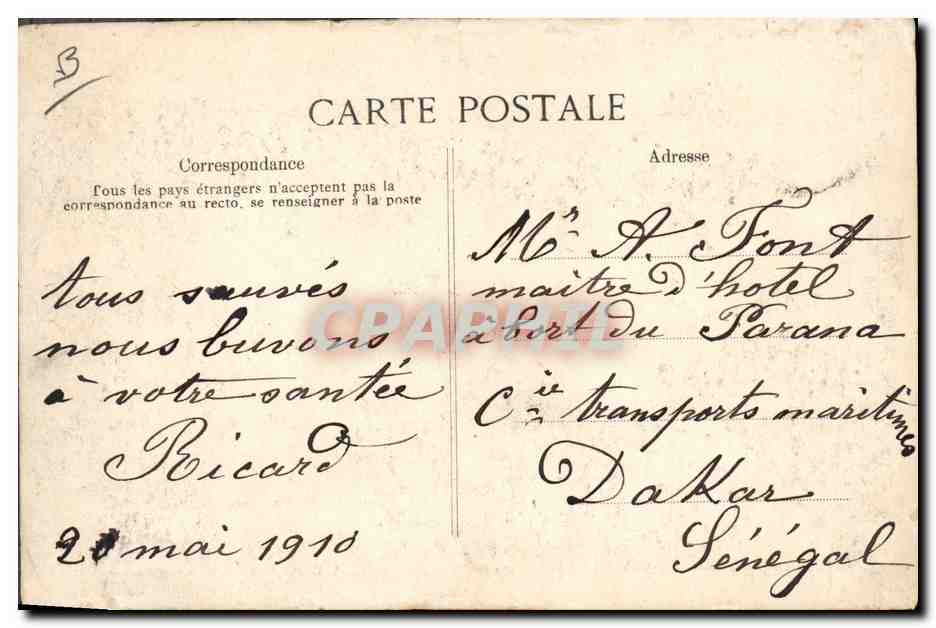 B
CARTE POSTALE
Correspondance
Tous les pays étrangers n'acceptent pas la
correspondance au recto, se renseigner à la poste
tous sauvés
nous buvons
à votre santée
Ricard
mai 1910
Adresse
Mr A. Font
maitre d'hotel
à bort du Parana
Cie transports maritimes
Dakar
Sénégal
CPAPHIL